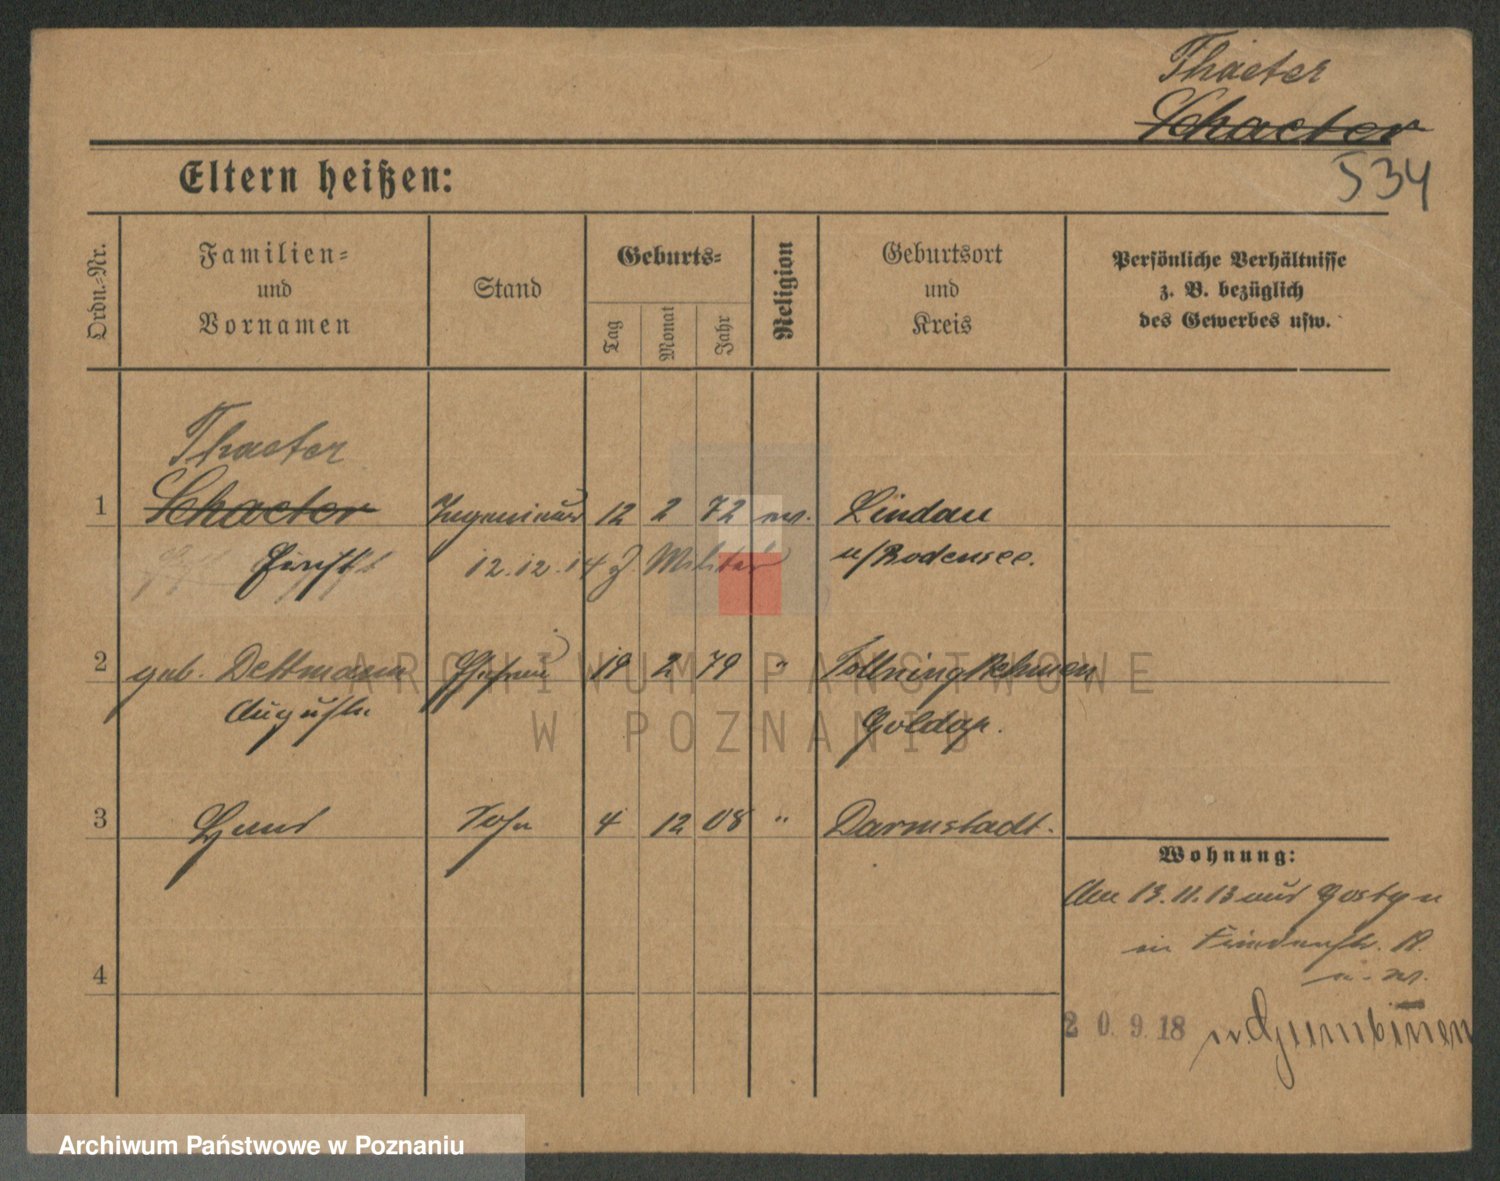 Thaeter
Schaeter
534
Eltern heißen:
Ordn.-Nr.
Familien-
und
Vornamen
Stand
Geburts-
Tag
Monat
Jahr
Religion
Geburtsort
und
Kreis
Persönliche Verhältnisse
z. B. bezüglich
des Gewerbes usw.
Thaeter
1 Schaeter Ingenieur 12 2 72 ev. Lindau
12.12.14 z Militär a/Bodensee.
2 geb. Dettmann Ehefrau 19 2 79 "
Auguste Goldap.
3 Sohn 4 12 08 " Darmstadt.
4
Wohnung:
Am 13.11.13 aus Gostyn
in 19.
20.9.18 n. Gumbinnen
ARCHIWUM PAŃSTWOWE
W POZNANIU
Archiwum Państwowe w Poznaniu